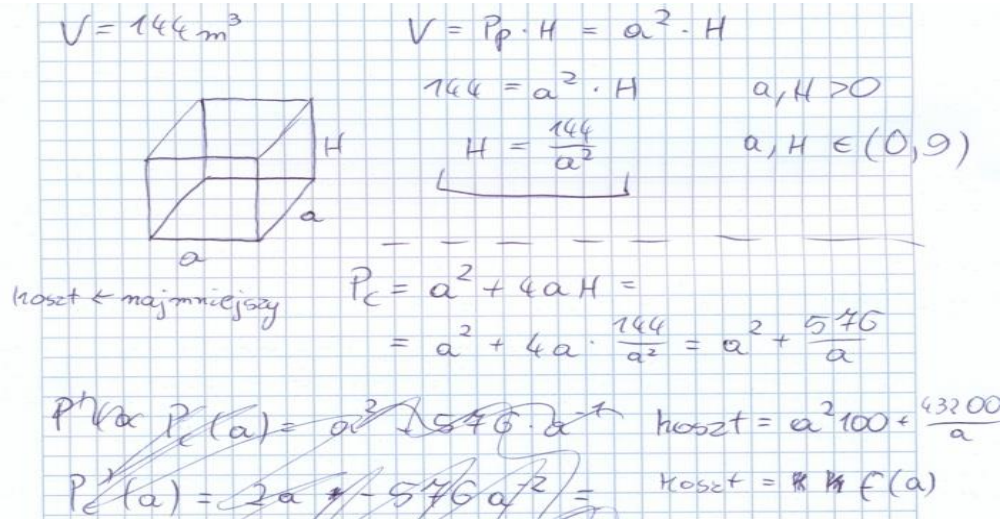 V = 144 m³
V = Pp · H = a² · H
144 = a² · H
a, H > 0
H = 144/a²
a, H ∈ (0, 9)
H
a
a
koszt ← najmniejszy
Pc = a² + 4aH =
= a² + 4a · 144/a² = a² + 576/a
Pc(a) = a² + 576 · a⁻¹
koszt = a²100 + 43200/a
Pc'(a) = 2a - 576 a⁻² =
koszt = f(a)